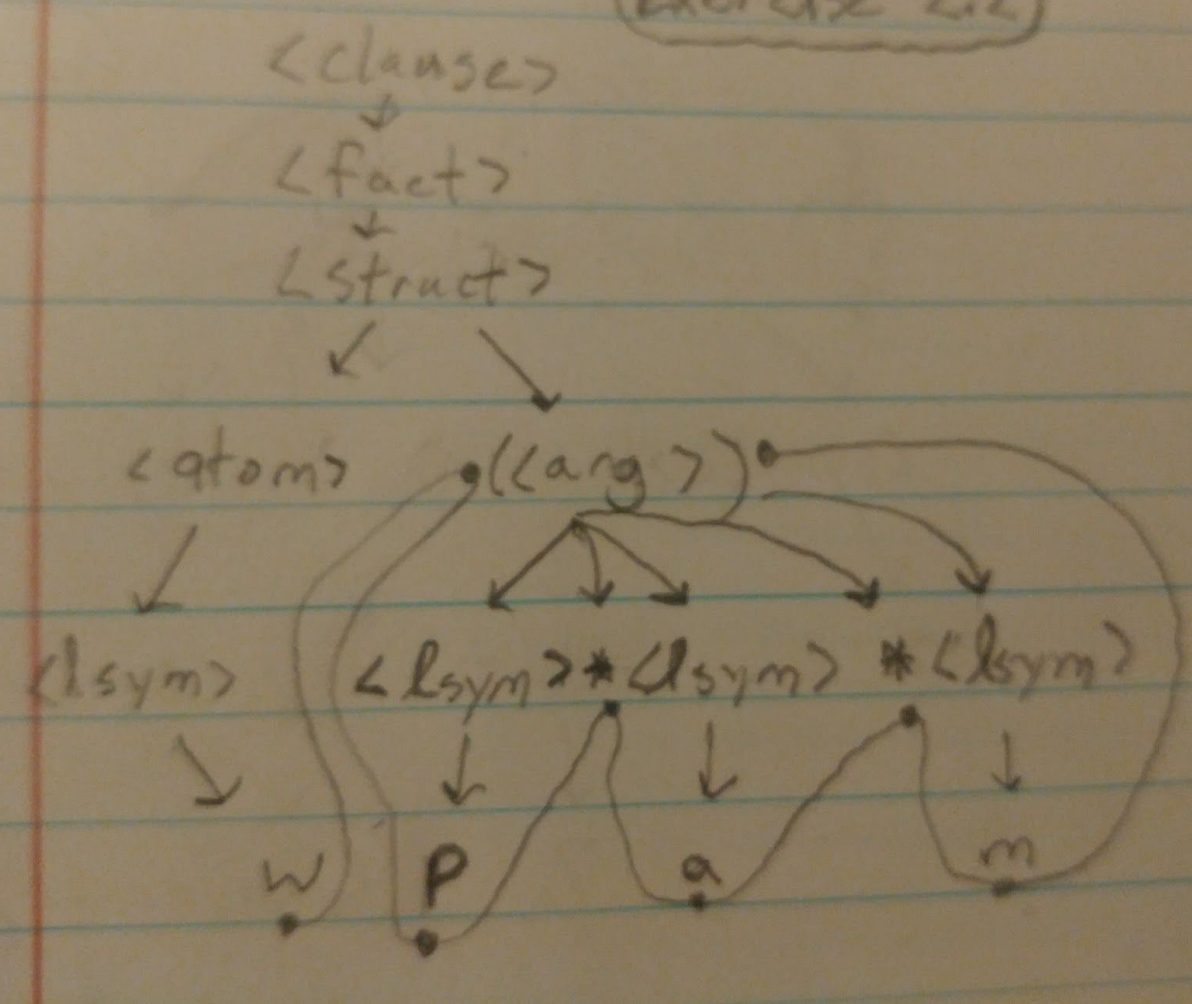 <clause>
<fact>
<struct>
<atom> (<arg>)
<lsym> <lsym>*<lsym> *<lsym>
w p a m